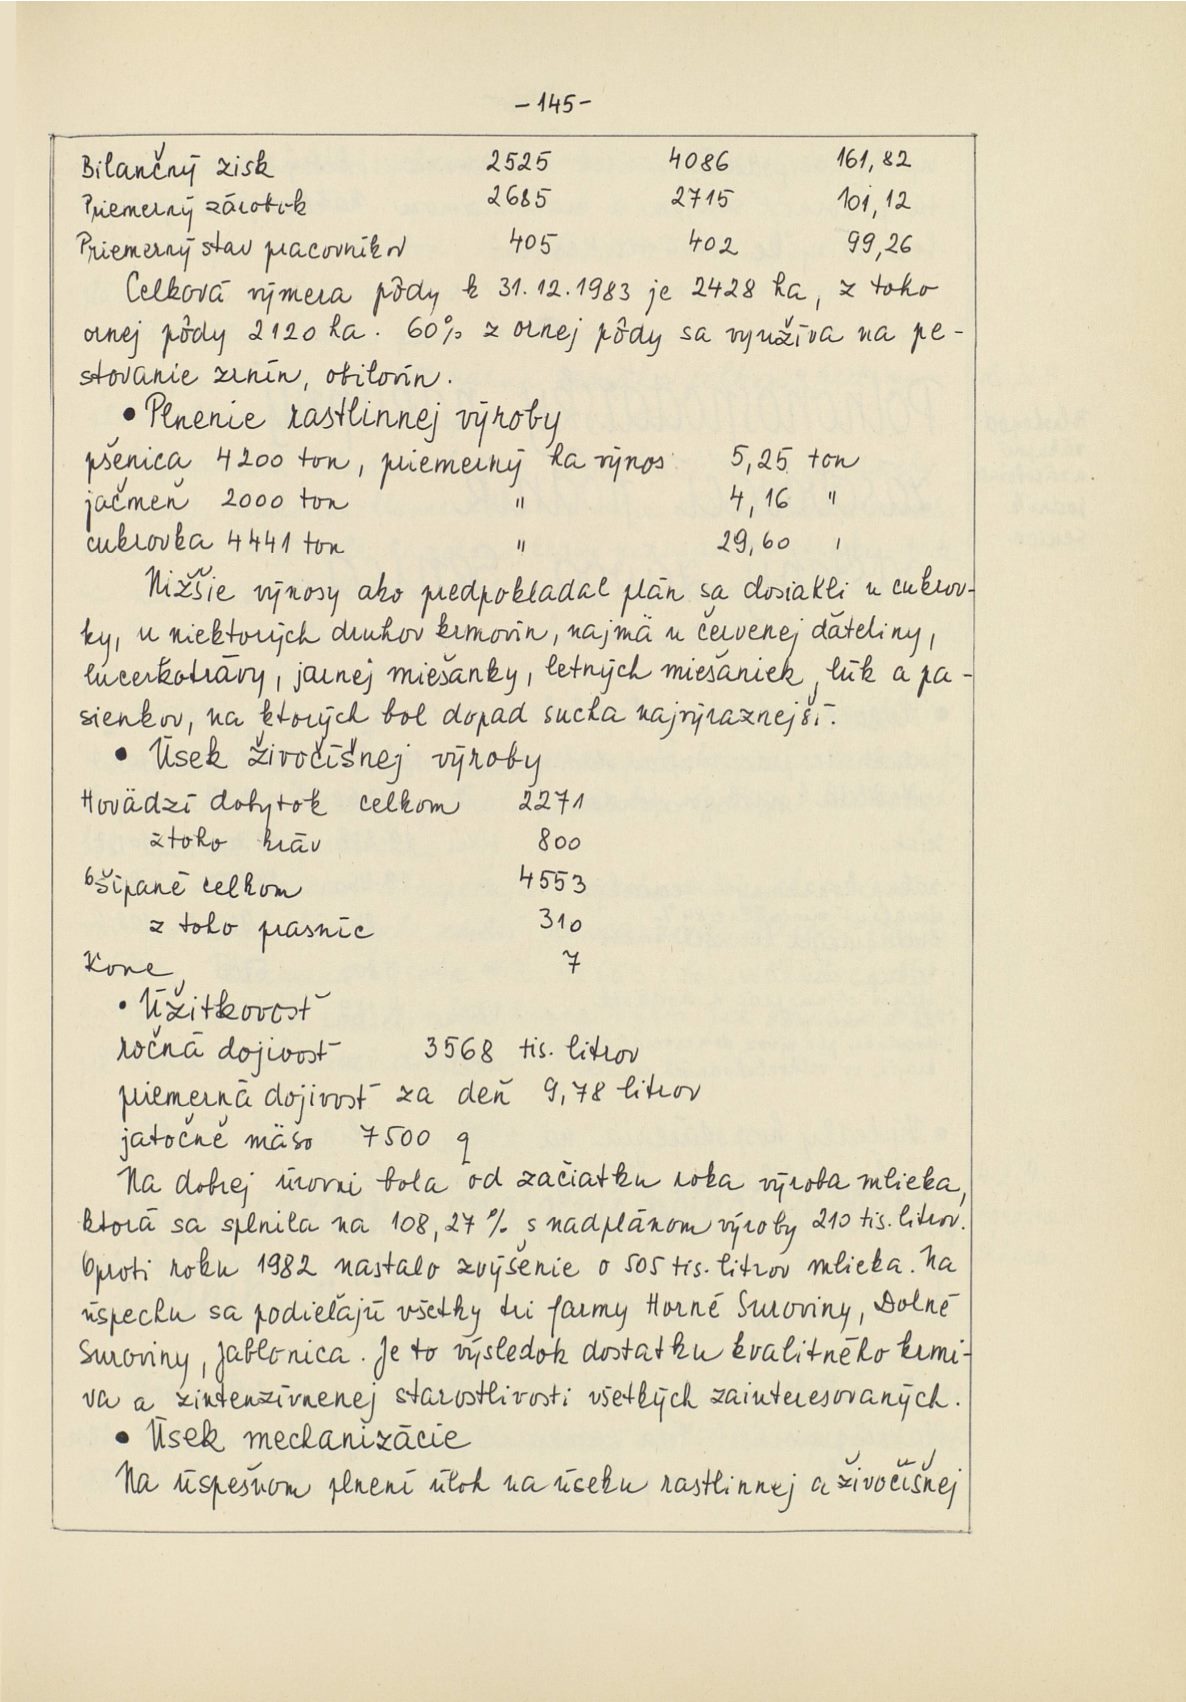 -145-
Bilančný zisk 2525 4086 161,82
Priemerný zárobok 2685 2715 101,12
Priemerný stav pracovníkov 405 402 99,26
Celková výmera pôdy k 31.12.1983 je 2428 ha, z toho
ornej pôdy 2120 ha. 60% z ornej pôdy sa využíva na pe-
stovanie zrnín, obilovín.
• Plnenie rastlinnej výroby
pšenica 4200 ton, priemerný ha výnos 5,25 ton
jačmeň 2000 ton " 4,16 "
cukrovka 4441 ton " 29,60 '
Nižšie výnosy ako predpokladal plán sa dosiahli u cukrov-
ky, u niektorých druhov krmovín, najmä u červenej ďateliny,
lucerkotrávy, jarnej miešanky, letných miešaniek, lúk a pa-
sienkov, na ktorých bol dopad sucha najvýraznejší.
• Úsek živočíšnej výroby
Hovädzí dobytok celkom 2271
z toho kráv 800
Ošípané celkom 4553
z toho prasníc 310
Kone 7
• Úžitkovosť
ročná dojivosť 3568 tis. litrov
priemerná dojivosť za deň 9,78 litrov
jatočné mäso 7500 q
Na dobrej úrovni bola od začiatku roka výroba mlieka,
ktorá sa splnila na 108,27 % s nadplánom výroby 210 tis. litrov.
Oproti roku 1982 nastalo zvýšenie o 505 tis. litrov mlieka. Na
úspechu sa podieľajú všetky tri farmy Horné Suroviny, Dolné
Suroviny, Jablonica. Je to výsledok dostatku kvalitného krmi-
va a zintenzívnenej starostlivosti všetkých zainteresovaných.
• Úsek mechanizácie
Na úspešnom plnení úloh na úseku rastlinnej a živočíšnej